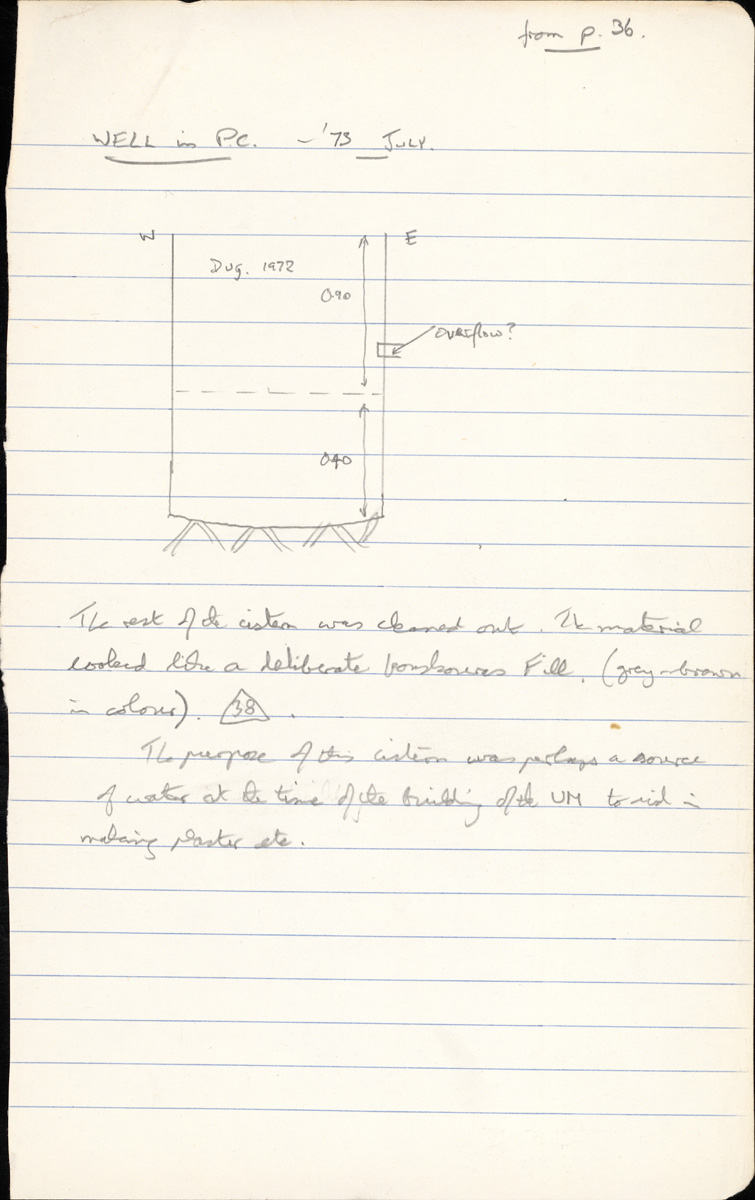 from p. 36.
WELL in PC. - '73 JULY.
W E
Dug. 1972
0.90
OVERflow?
0.40
The rest of the cistern was cleaned out. The material
looked like a deliberate Fill. (grey-brown
in colour). 38 .
The purpose of this cistern was perhaps a source
of water at the time of the building of the UM to aid in
making plaster etc.